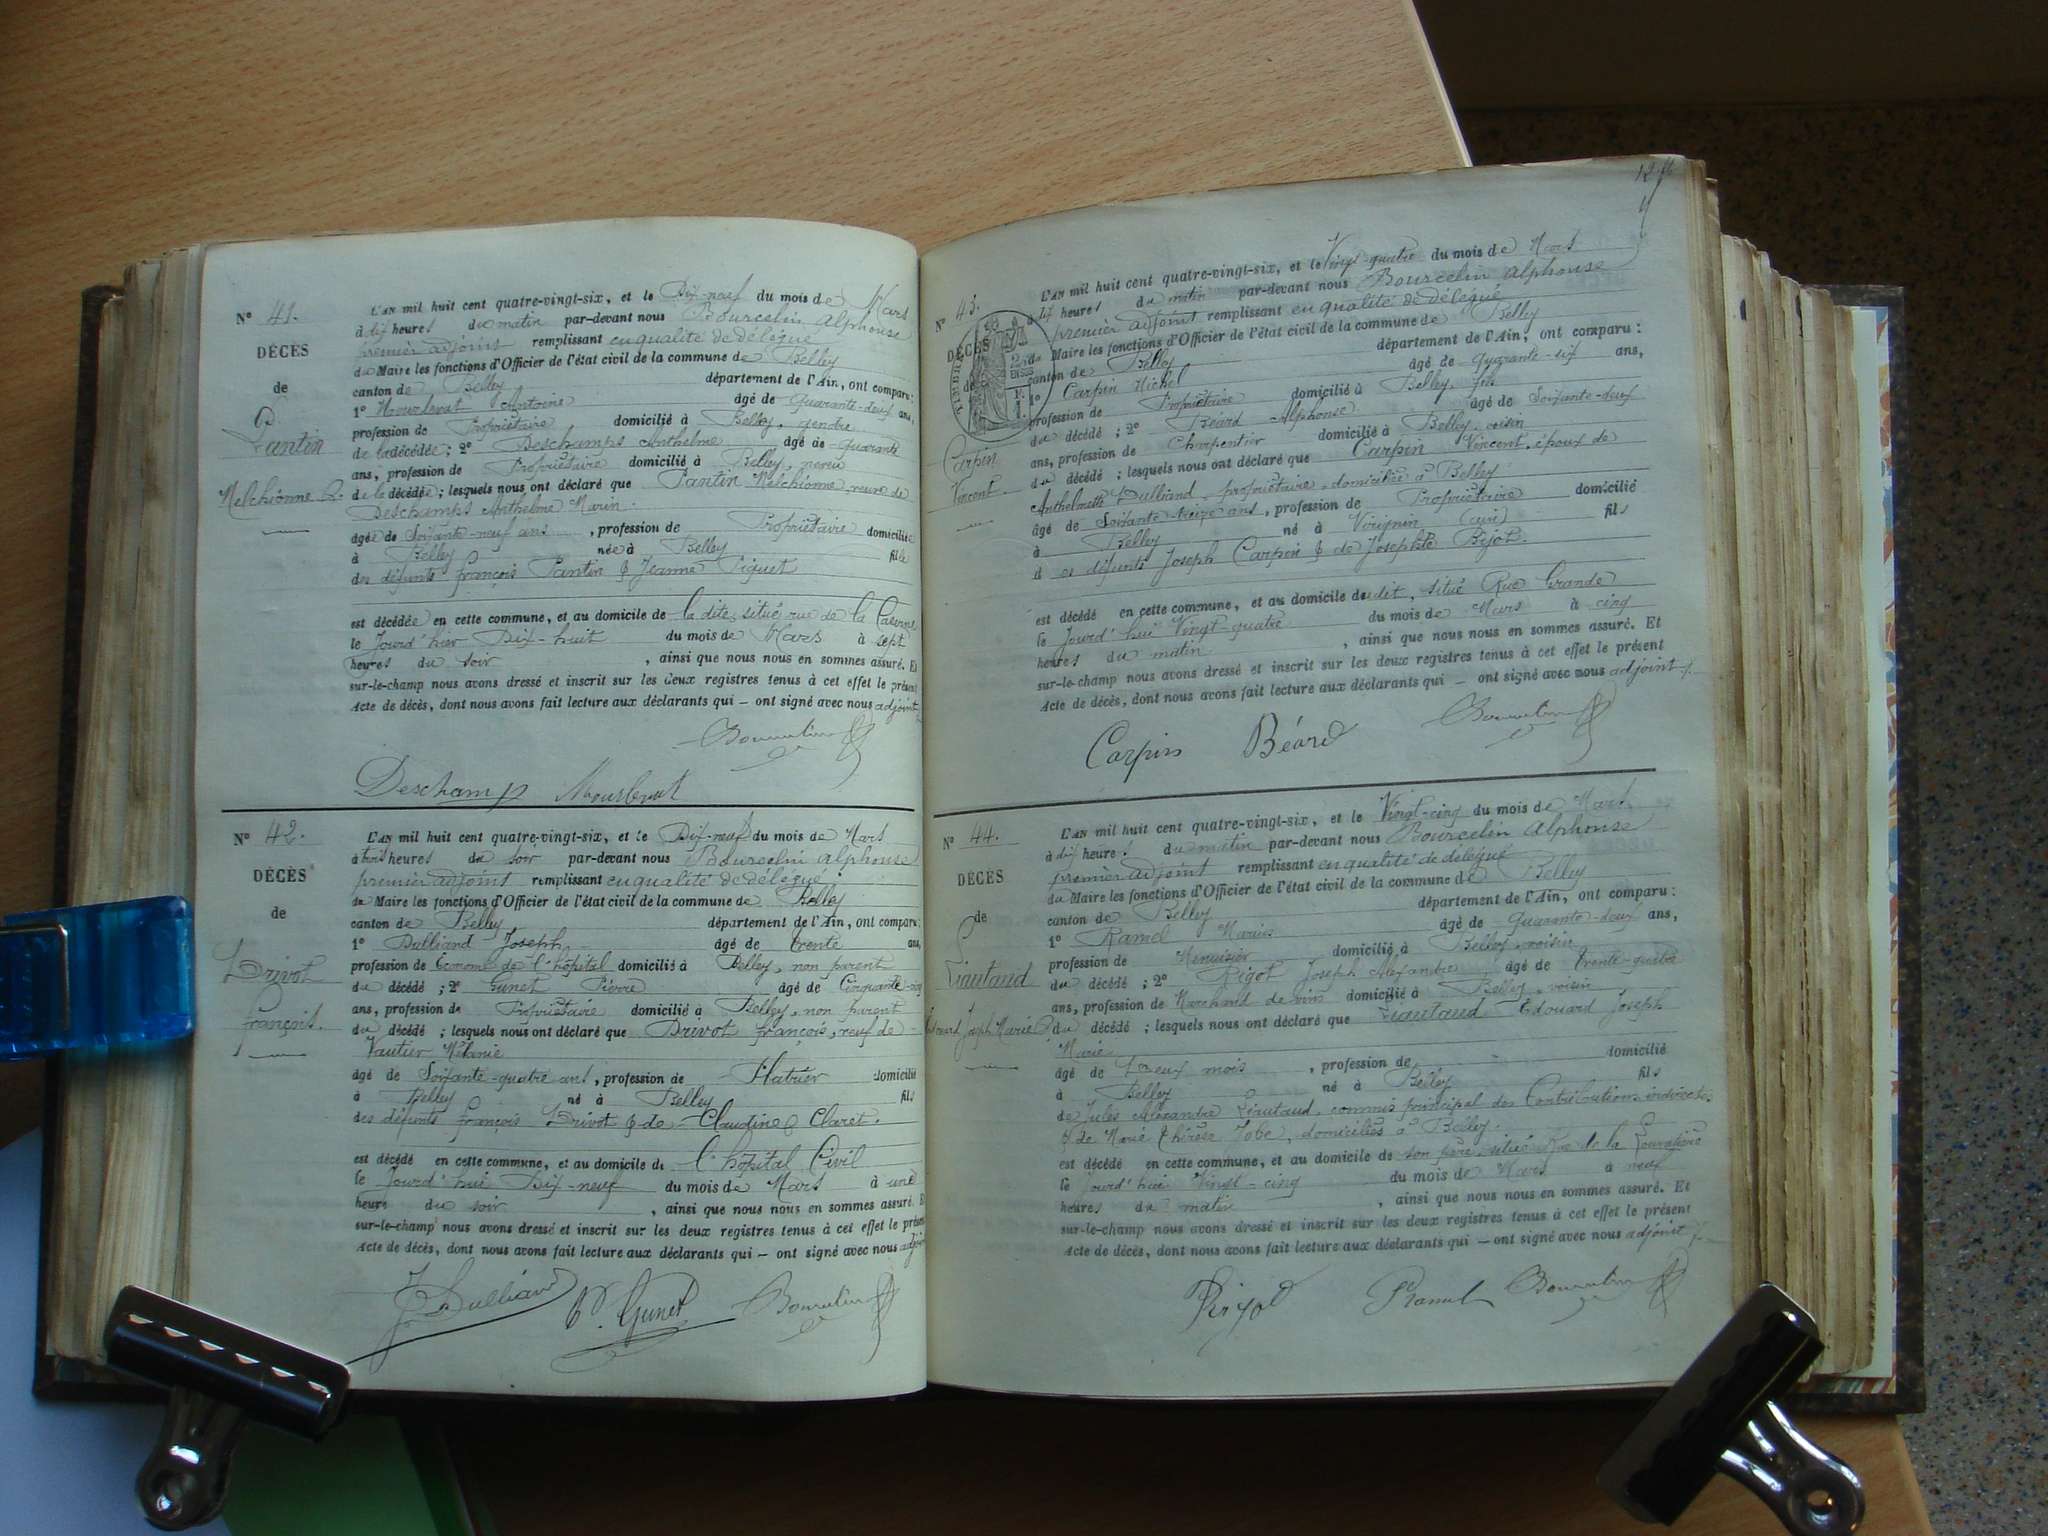 N° 41.
DÉCÈS
de
Pantin
Melchionne
L'AN mil huit cent quatre-vingt-six, et le Dix-neuf du mois de Mars
à dix heures du matin par-devant nous Bourcelin Alphonse
premier adjoint remplissant en qualité de délégué
du Maire les fonctions d'Officier de l'état civil de la commune de Belley
canton de Belley département de l'Ain, ont comparu :
1° Mourlevat Antoine âgé de Quarante-deux ans,
profession de Propriétaire domicilié à Belley, gendre
de la décédée ; 2° Deschamps Anthelme âgé de quarante
ans, profession de Propriétaire domicilié à Belley, neveu
de la décédée ; lesquels nous ont déclaré que Pantin Melchionne, veuve de
Deschamps Anthelme Marin.
âgée de Soixante-neuf ans, profession de Propriétaire domiciliée
à Belley née à Belley fille
des défunts françois Pantin & Jeanne Piguet
est décédée en cette commune, et au domicile de la dite, situé rue de la Caserne
le Jourd'hier Dix-huit du mois de Mars à sept
heures du soir, ainsi que nous nous en sommes assuré. Et
sur-le-champ nous avons dressé et inscrit sur les deux registres tenus à cet effet le présent
Acte de décès, dont nous avons fait lecture aux déclarants qui — ont signé avec nous adjoint
Deschamp Mourlevat
N° 42.
DÉCÈS
de
Drivot
françois.
L'AN mil huit cent quatre-vingt-six, et le Dix-neuf du mois de Mars
à trois heures du soir par-devant nous Bourcelin Alphonse
premier adjoint remplissant en qualité de délégué
du Maire les fonctions d'Officier de l'état civil de la commune de Belley
canton de Belley département de l'Ain, ont comparu :
1° Dulliand Joseph âgé de trente ans,
profession de Econome de l'hôpital domicilié à Belley, non parent
du décédé ; 2° Gunet Pierre âgé de Cinquante-cinq
ans, profession de Propriétaire domicilié à Belley, non parent
du décédé ; lesquels nous ont déclaré que Drivot françois, veuf de
Vautier Mélanie
âgé de Soixante-quatre ans, profession de domicilié
à Belley né à Belley fils
des défunts françois Drivot & de Claudine Claret.
est décédé en cette commune, et au domicile de l'hôpital Civil
le Jourd'hui Dix-neuf du mois de Mars à une
heure du soir, ainsi que nous nous en sommes assuré. Et
sur-le-champ nous avons dressé et inscrit sur les deux registres tenus à cet effet le présent
Acte de décès, dont nous avons fait lecture aux déclarants qui — ont signé avec nous adjoint
J. Dulliand P. Gunet
N° 43.
DÉCÈS
de
Carpin
Vincent.
L'AN mil huit cent quatre-vingt-six, et le Vingt-quatre du mois de Mars
à dix heures du matin par-devant nous Bourcelin Alphonse
premier adjoint remplissant en qualité de délégué
du Maire les fonctions d'Officier de l'état civil de la commune de Belley
canton de Belley département de l'Ain, ont comparu :
1° Carpin Michel âgé de quarante-six ans,
profession de Propriétaire domicilié à Belley, fils
du décédé ; 2° Béard Alphonse âgé de Soixante-deux
ans, profession de Charpentier domicilié à Belley, voisin
du décédé ; lesquels nous ont déclaré que Carpin Vincent, époux de
Anthelmette Dulliand, propriétaire, domiciliée à Belley
âgé de Soixante-treize ans, profession de Propriétaire domicilié
à Belley né à Virignin (Ain) fils
des défunts Joseph Carpin & de Josephte Bijot.
est décédé en cette commune, et au domicile du dit, situé Rue Grande
le Jourd'hui Vingt-quatre du mois de Mars à cinq
heures du matin, ainsi que nous nous en sommes assuré. Et
sur-le-champ nous avons dressé et inscrit sur les deux registres tenus à cet effet le présent
Acte de décès, dont nous avons fait lecture aux déclarants qui — ont signé avec nous adjoint
Carpin Béard
N° 44.
DÉCÈS
de
Liautaud
L'AN mil huit cent quatre-vingt-six, et le Vingt-cinq du mois de Mars
à dix heures du matin par-devant nous Bourcelin Alphonse
premier adjoint remplissant en qualité de délégué
du Maire les fonctions d'Officier de l'état civil de la commune de Belley
canton de Belley département de l'Ain, ont comparu :
1° Ramel Marius âgé de Quarante-deux ans,
profession de Menuisier domicilié à Belley, voisin
du décédé ; 2° Rigot Joseph Alexandre âgé de trente-quatre
ans, profession de Marchand de vins domicilié à Belley, voisin
du décédé ; lesquels nous ont déclaré que Liautaud Edouard Joseph
Marie
âgé de Deux mois, profession de domicilié
à Belley né à Belley fils
de Jules Alexandre Liautaud, commis principal des Contributions indirectes
& de Marie Thérèse Jobe, domiciliés à Belley.
est décédé en cette commune, et au domicile de son père, situé Rue de la
le Jourd'hui Vingt-cinq du mois de Mars à neuf
heures du matin, ainsi que nous nous en sommes assuré. Et
sur-le-champ nous avons dressé et inscrit sur les deux registres tenus à cet effet le présent
Acte de décès, dont nous avons fait lecture aux déclarants qui — ont signé avec nous adjoint
Ramel